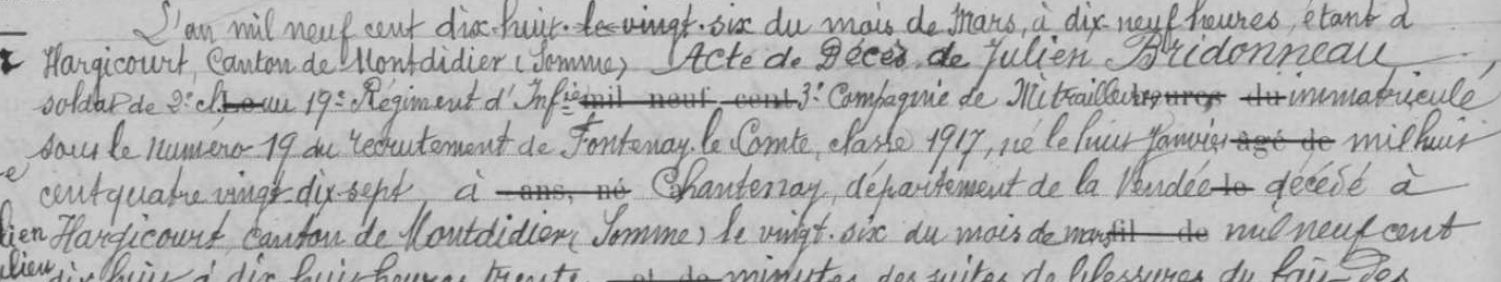 L'an mil neuf cent dix-huit le vingt-six du mois de Mars, à dix-neuf heures, étant à
Hargicourt, Canton de Montdidier (Somme) Acte de Décès de Julien Bridonneau,
soldat de 2e cl au 19e Régiment d'Infie mil neuf cent 3e Compagnie de Mitrailleurs heures du immatriculé
sous le numéro 19 au recrutement de Fontenay-le-Comte, classe 1917, né le huit Janvier agé de mil huit
cent quatre vingt dix-sept, à ans, né Chantenay, département de la Vendée le décédé à
lien Hargicourt canton de Montdidier (Somme) le vingt-six du mois de mars fil de mil neuf cent
lien dix huit à dix huit heures trente et de minutes des suites de blessures du fait des